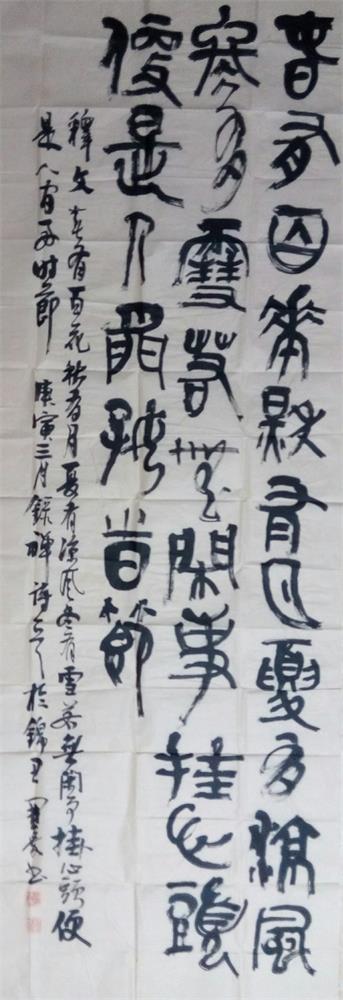 春有百花秋有月夏有涼風
冬有雪若無閑事挂心頭
便是人間好時節
釋文春有百花秋有月夏有涼風冬有雪若無閑事掛心頭便
是人間好時節 庚寅三月錄禪詩一首於錦里